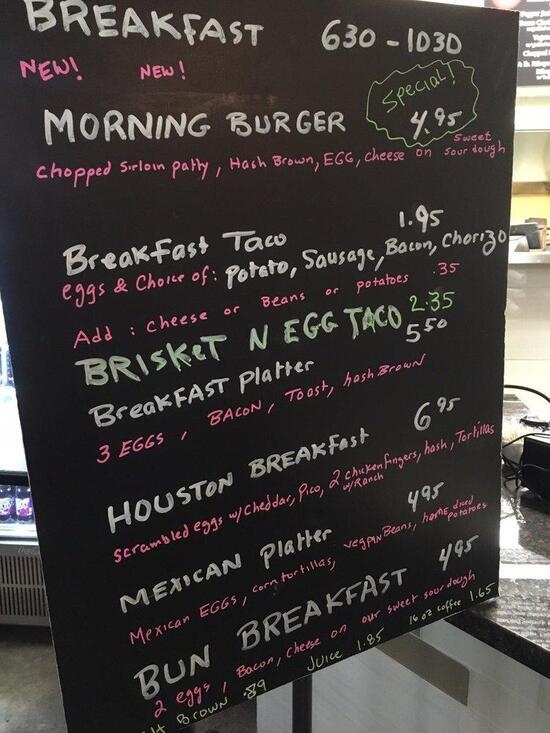 BREAKFAST 630-1030
NEW! NEW!
Special!
MORNING BURGER 4.95
Chopped Sirloin patty, Hash Brown, EGG, cheese on sweet sour dough
Breakfast Taco 1.95
eggs & Choice of: Potato, Sausage, Bacon, Chorizo
Add: cheese or Beans or potatoes .35
BRISKET N EGG TACO 2.35
BreakFAST Platter 5.50
3 EGGS, BACON, Toast, hash Brown
HOUSTON BREAKfast 6.95
Scrambled eggs w/ Cheddar, Pico, 2 chicken fingers, hash, Tortillas
w/Ranch
MEXICAN Platter 4.95
Mexican EGGS, corn tortillas, vegan Beans, home diced potatoes
BUN BREAKFAST 4.95
2 eggs, Bacon, Cheese on our sweet sour dough
BROWN .89 JUICE 1.85 16 oz coffee 1.65